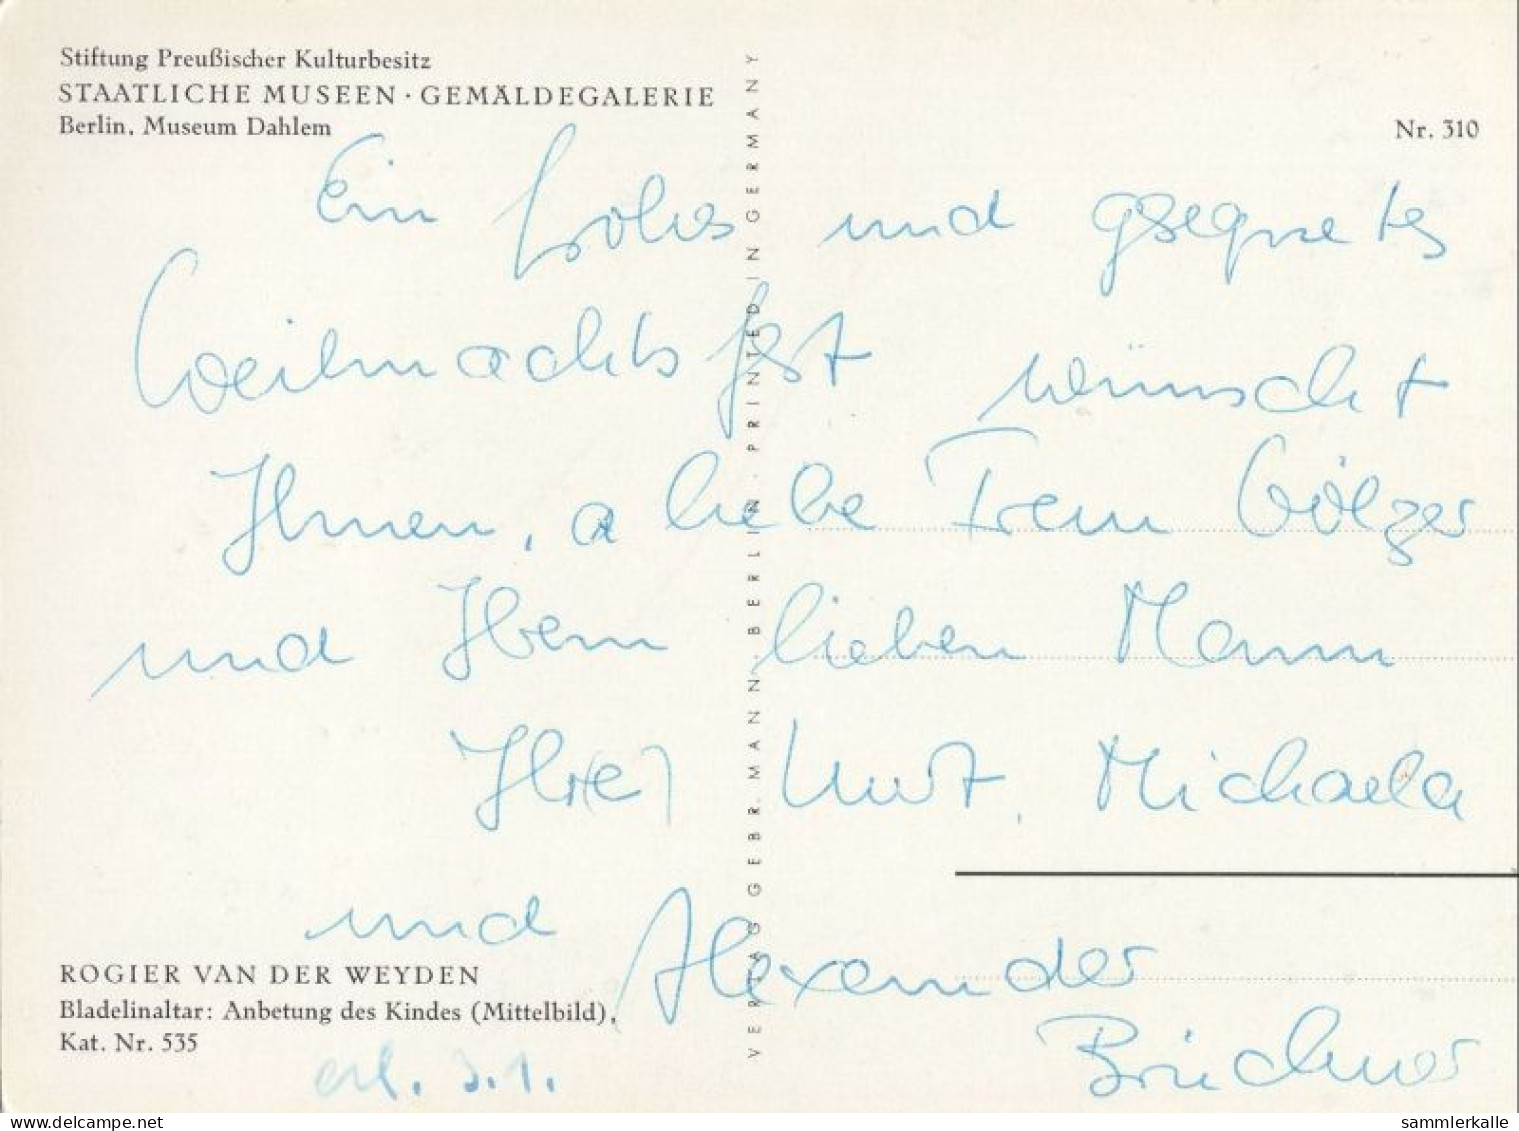 Stiftung Preußischer Kulturbesitz
STAATLICHE MUSEEN · GEMÄLDEGALERIE
Berlin, Museum Dahlem
Nr. 310
Ein frohes und gesegnetes
Weihnachtsfest wünscht
Ihnen, liebe Frau Wölzer
und Ihrem lieben Mann
Ihr(e) Kurt, Michaela
und Alexander
Brückner
ROGIER VAN DER WEYDEN
Bladelinaltar: Anbetung des Kindes (Mittelbild),
Kat. Nr. 535
erl. 3.1.
VERLAG GEBR. MANN · BERLIN · PRINTED IN GERMANY
sammlerkalle